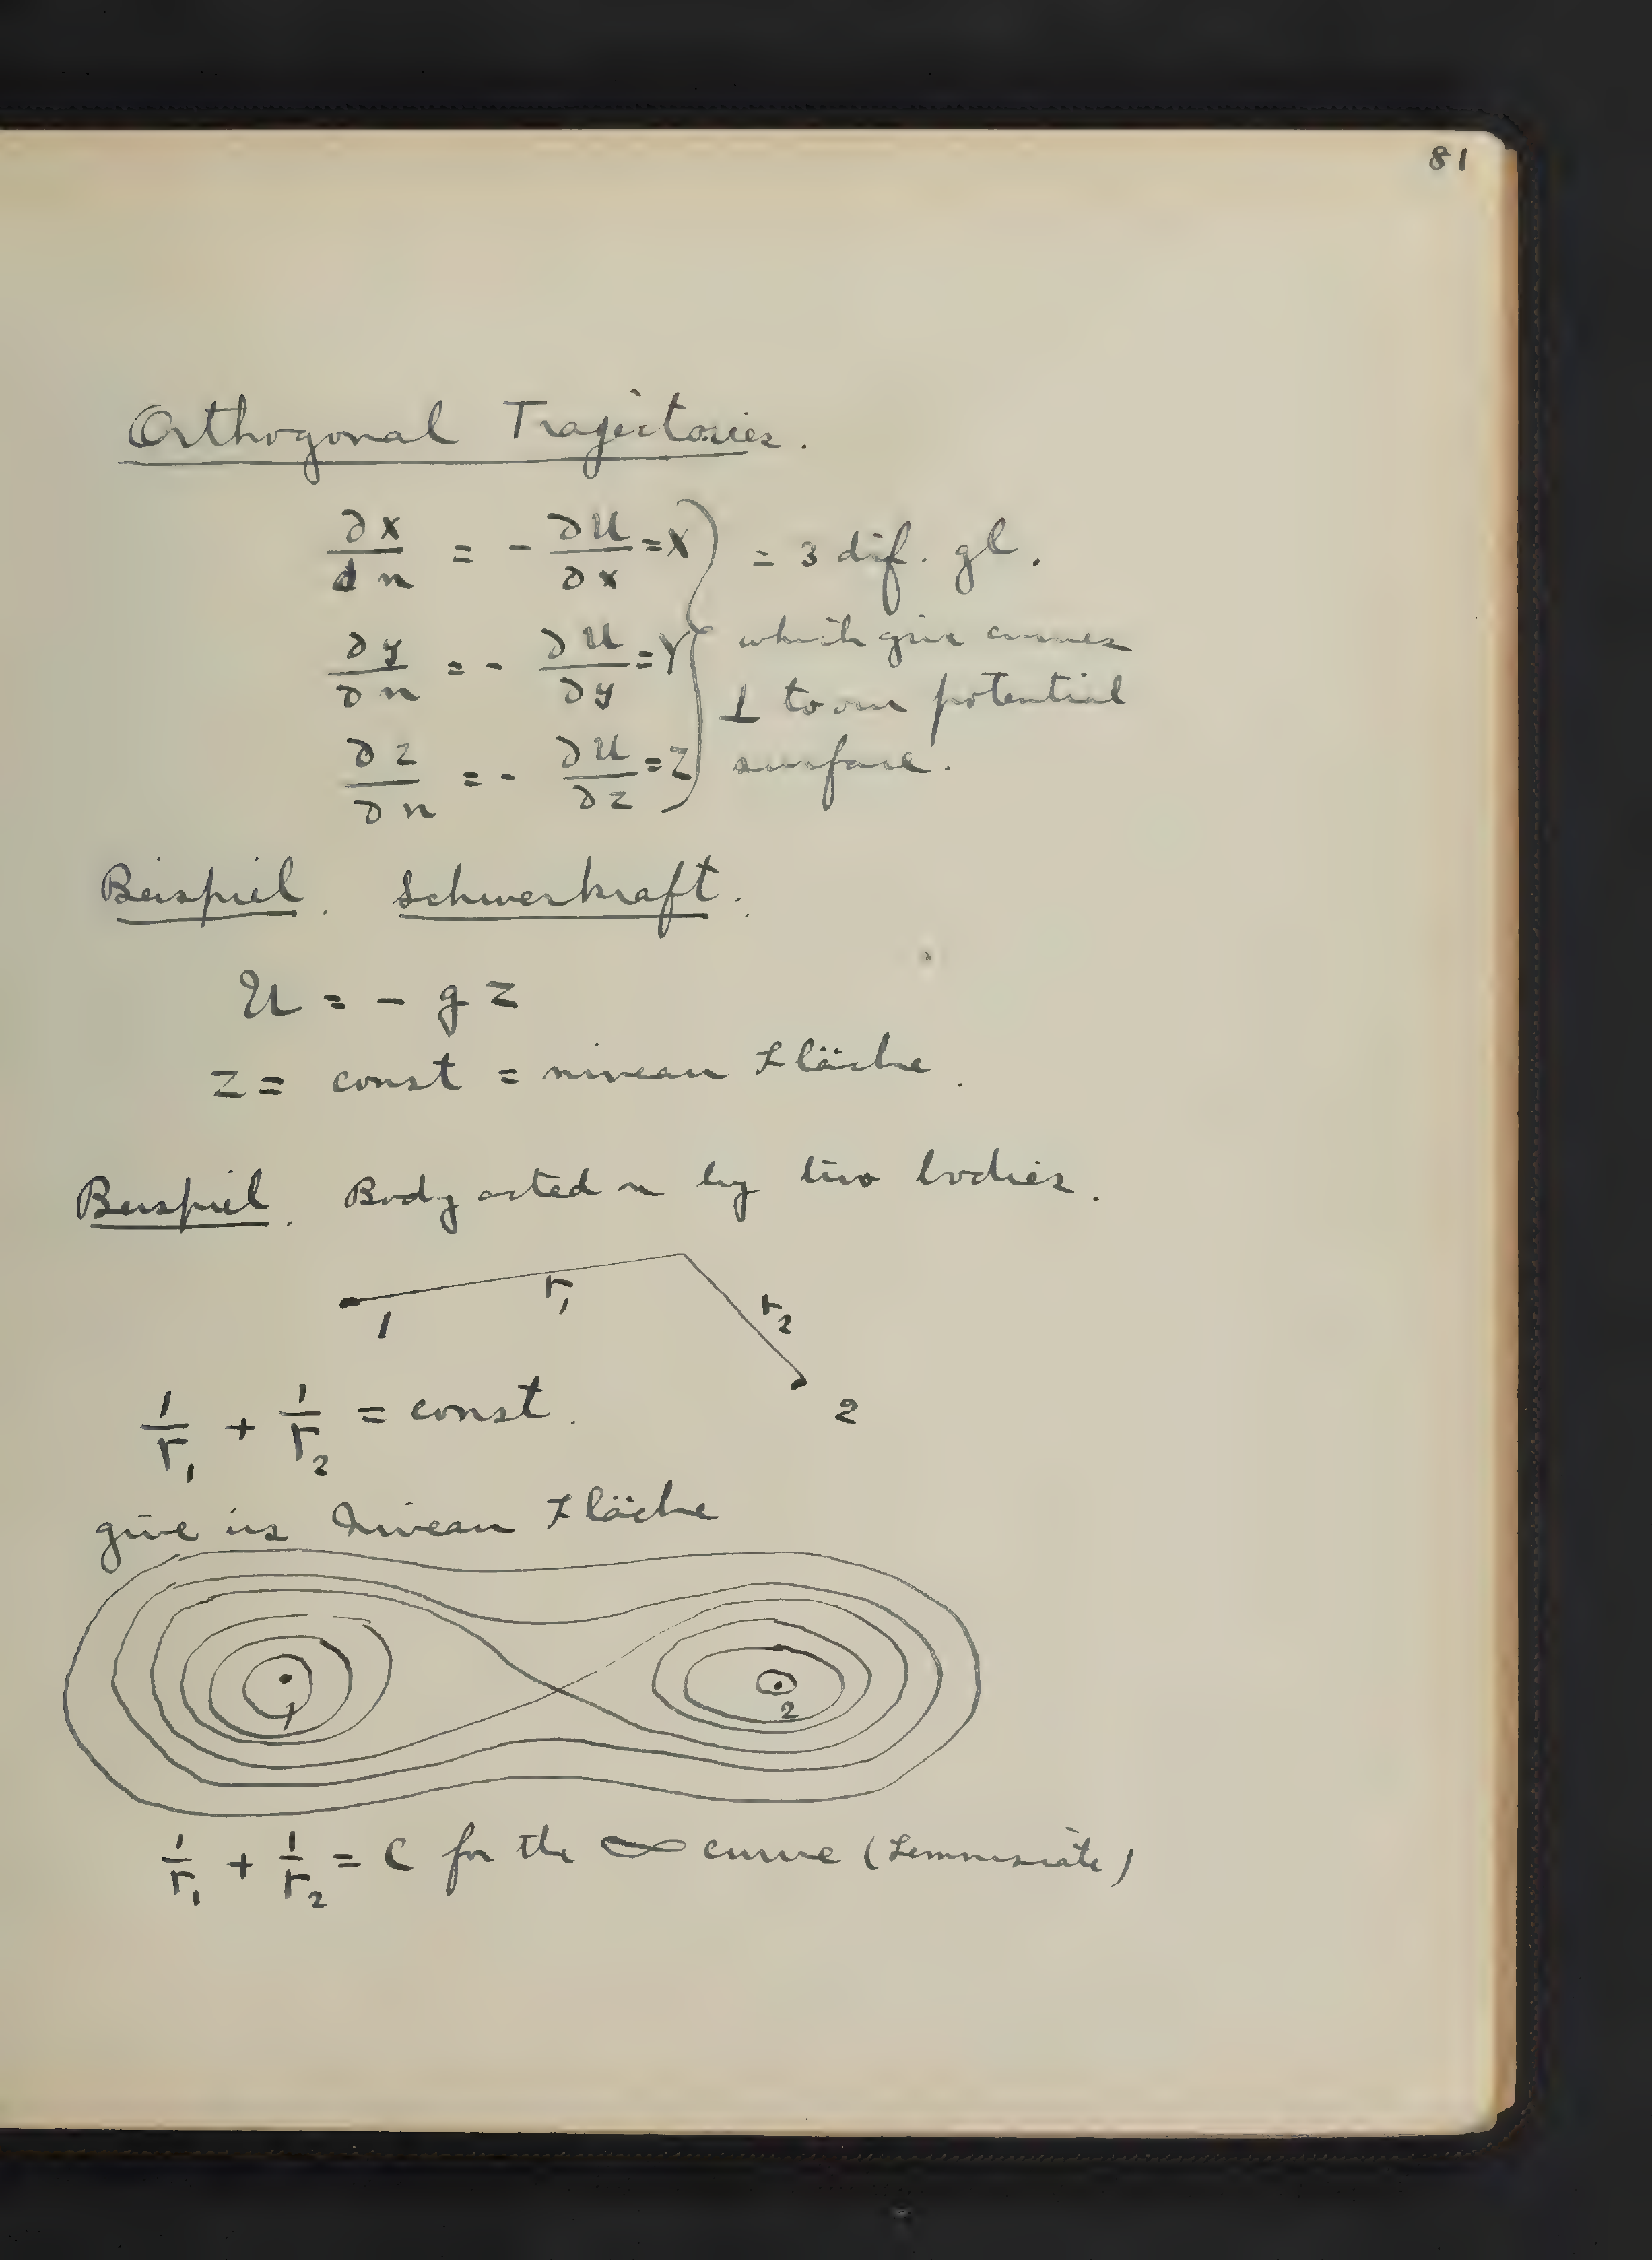 81
Orthogonal Trajectories.
∂x/∂n = - ∂U/∂x = X } = 3 dif. gl.
∂y/∂n = - ∂U/∂y = Y which give curves
⊥ to our potential
∂z/∂n = - ∂U/∂z = Z surface.
Beispiel. Schwerkraft.
U = - g z
z = const = niveau Fläche.
Beispiel. Body acted on by two bodies.
r₁
r₂
1
2
1/r₁ + 1/r₂ = const.
give us Niveau Fläche
1
2
1/r₁ + 1/r₂ = C for the ∞ curve (Lemniscate)